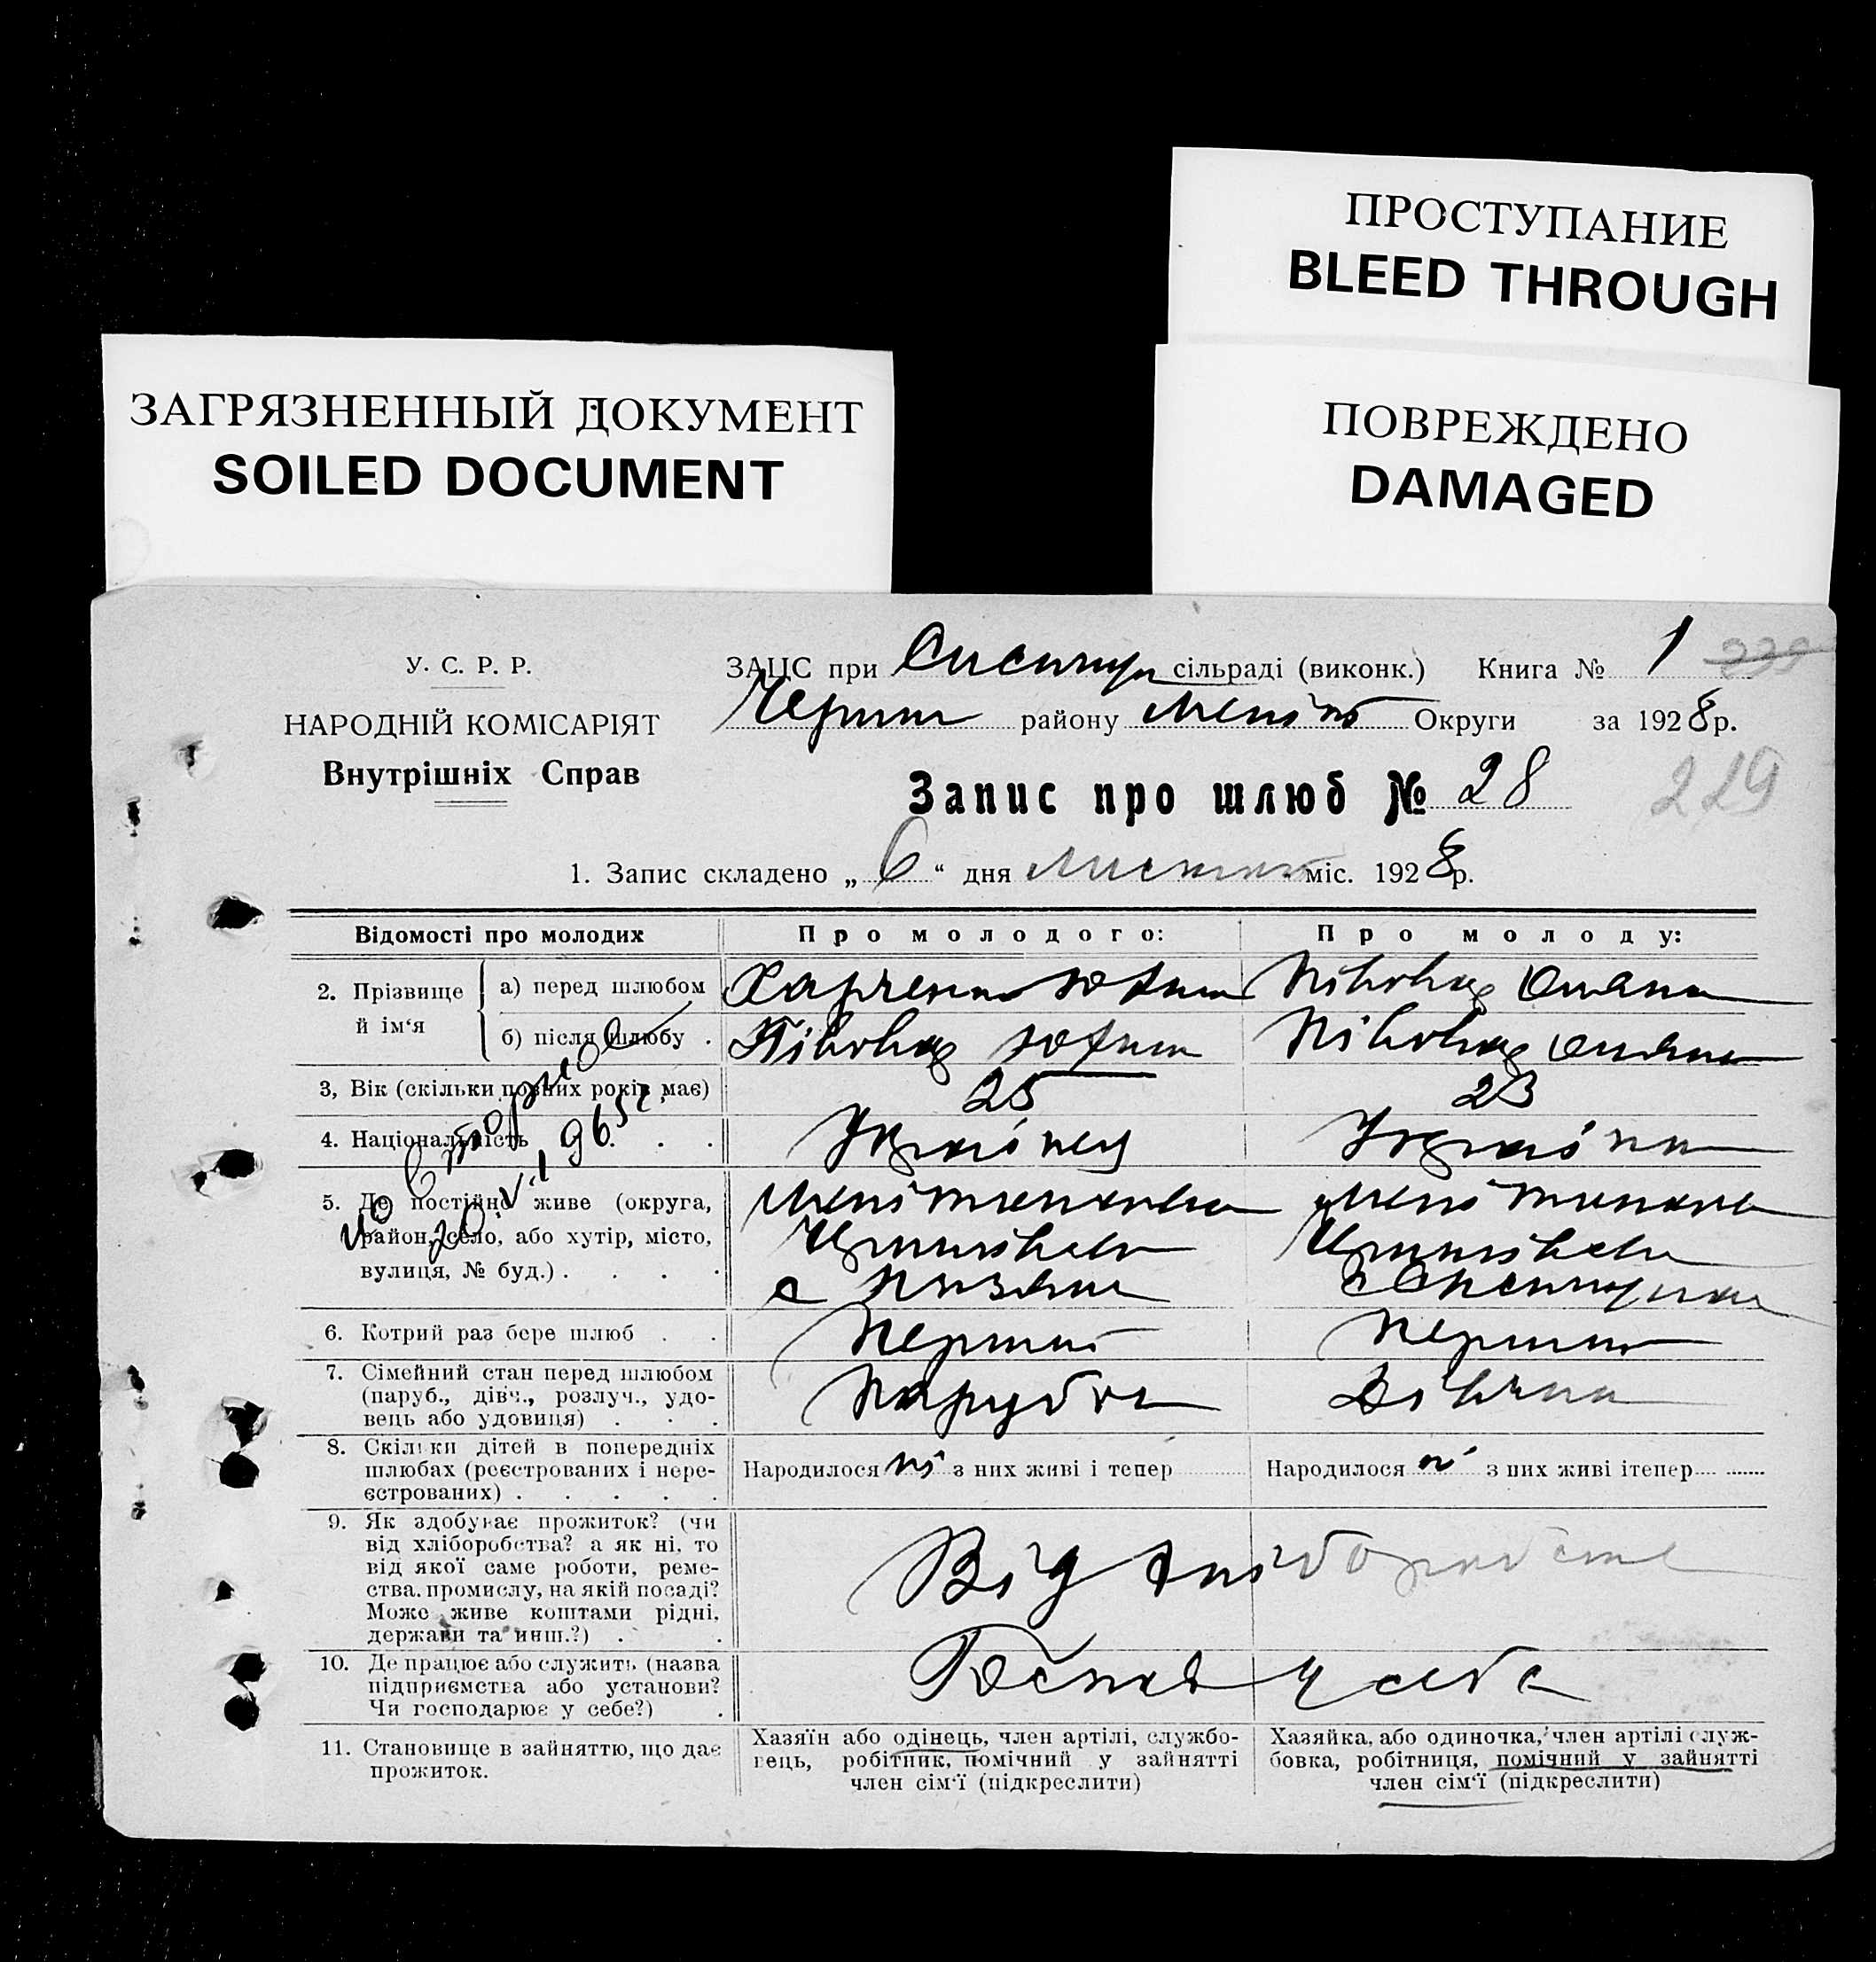 ПРОСТУПАНИЕ
BLEED THROUGH
ЗАГРЯЗНЕННЫЙ ДОКУМЕНТ
SOILED DOCUMENT
ПОВРЕЖДЕНО
DAMAGED
У. С. Р. Р.
НАРОДНІЙ КОМІСАРІЯТ
Внутрішніх Справ
ЗАЦС при сільраді (виконк.) Книга № 1
району Округи за 1928 р.
Запис про шлюб № 28
229
1. Запис складено „ 6 “ дня міс. 1928 р.
Відомості про молодих
Про молодого:
Про молоду:
2. Прізвище й ім‘я
а) перед шлюбом
Харченко Юхим
Півовар
б) після шлюбу .
Півовар Юхим
Півовар
3, Вік (скільки повних років має)
25
23
4. Національність . . .
Українец
Українка
5. Де постійно живе (округа,
район, село, або хутір, місто,
вулиця, № буд.) . . . .
6. Котрий раз бере шлюб . .
Перший
Перший
7. Сімейний стан перед шлюбом
(паруб., дівч., розлуч., удо-
вець або удовиця) . . .
Парубок
Дівчина
8. Скільки дітей в попередніх
шлюбах (реєстрованих і нере-
єстрованих) . . . . .
Народилося ні з них живі і тепер
Народилося ні з них живі ітепер
9. Як здобуває прожиток? (чи
від хліборобства? а як ні, то
від якої саме роботи, реме-
ства, промислу, на якій посаді?
Може живе коштами рідні,
держави та инш.?) . .
Від хліборобства
10. Де працює або служить (назва
підприємства або установи?
Чи господарює у себе?) .
Господ у себе
11. Становище в зайняттю, що дає
прожиток.
Хазяїн або одінець, член артілі, службо-
вець, робітник, помічний у зайнятті
член сім‘ї (підкреслити)
Хазяйка, або одиночка, член артілі служ-
бовка, робітниця, помічний у зайнятті
член сім‘ї (підкреслити)